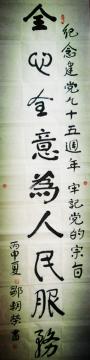 纪念建党九十五週年 牢記党的宗旨
全心全意為人民服務
丙申夏 邹朝荣書